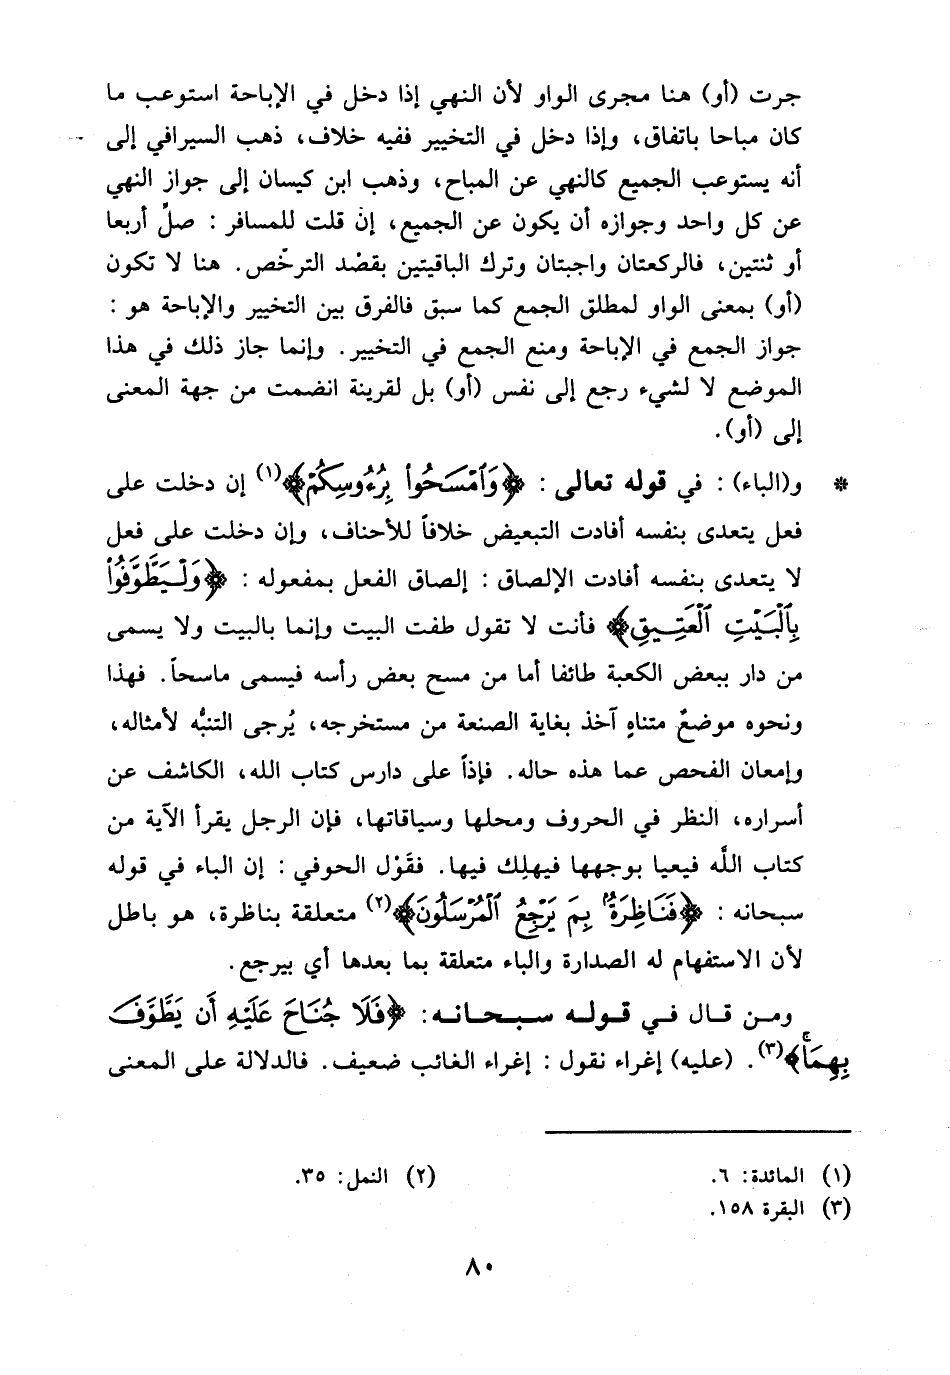 جرت (أو) هنا مجرى الواو لأن النهي إذا دخل في الإباحة استوعب ما
كان مباحا باتفاق، وإذا دخل في التخيير ففيه خلاف، ذهب السيرافي إلى
أنه يستوعب الجميع كالنهي عن المباح، وذهب ابن كيسان إلى جواز النهي
عن كل واحد وجوازه أن يكون عن الجميع، إن قلت للمسافر : صلِّ أربعا
أو ثنتين، فالركعتان واجبتان وترك الباقيتين بقصْد الترخّص. هنا لا تكون
(أو) بمعنى الواو لمطلق الجمع كما سبق فالفرق بين التخيير والإباحة هو :
جواز الجمع في الإباحة ومنع الجمع في التخيير. وإنما جاز ذلك في هذا
الموضع لا لشيء رجع إلى نفس (أو) بل لقرينة انضمت من جهة المعنى
إلى (أو).
* و(الباء) : في قوله تعالى : ﴿وَٱمۡسَحُواْ بِرُءُوسِكُمۡ﴾(١) إن دخلت على
فعل يتعدى بنفسه أفادت التبعيض خلافاً للأحناف، وإن دخلت على فعل
لا يتعدى بنفسه أفادت الإلصاق : إلصاق الفعل بمفعوله : ﴿وَلۡيَطَّوَّفُواْ
بِٱلۡبَيۡتِ ٱلۡعَتِيقِ﴾ فأنت لا تقول طفت البيت وإنما بالبيت ولا يسمى
من دار ببعض الكعبة طائفا أما من مسح بعض رأسه فيسمى ماسحاً. فهذا
ونحوه موضعٌ متناهٍ آخذ بغاية الصنعة من مستخرجه، يُرجى التنبُّه لأمثاله،
وإمعان الفحص عما هذه حاله. فإذاً على دارس كتاب الله، الكاشف عن
أسراره، النظر في الحروف ومحلها وسياقاتها، فإن الرجل يقرأ الآية من
كتاب اللَّه فيعيا بوجهها فيهلِك فيها. فقَوْل الحوفي : إن الباء في قوله
سبحانه : ﴿فَنَاظِرَةُۢ بِمَ يَرۡجِعُ ٱلۡمُرۡسَلُونَ﴾(٢) متعلقة بناظرة، هو باطل
لأن الاستفهام له الصدارة والباء متعلقة بما بعدها أي بيرجع.
ومن قال في قوله سبحانه: ﴿فَلَا جُنَاحَ عَلَيۡهِ أَن يَطَّوَّفَ
بِهِمَاۚ﴾(٣). (عليه) إغراء نقول : إغراء الغائب ضعيف. فالدلالة على المعنى
(١) المائدة: ٦.
(٢) النمل: ٣٥.
(٣) البقرة ١٥٨.
٨٠